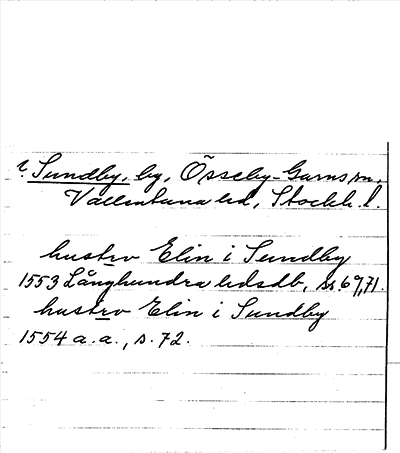 ? Sundby, by, Össeby-Garns sn,
Vallentuna hd, Stockh. l.
hustrv Elin i Sundby
1553 Långhundra hdsdb, ss 69,71.
hustrv Elin i Sundby
1554 a.a., s. 72.